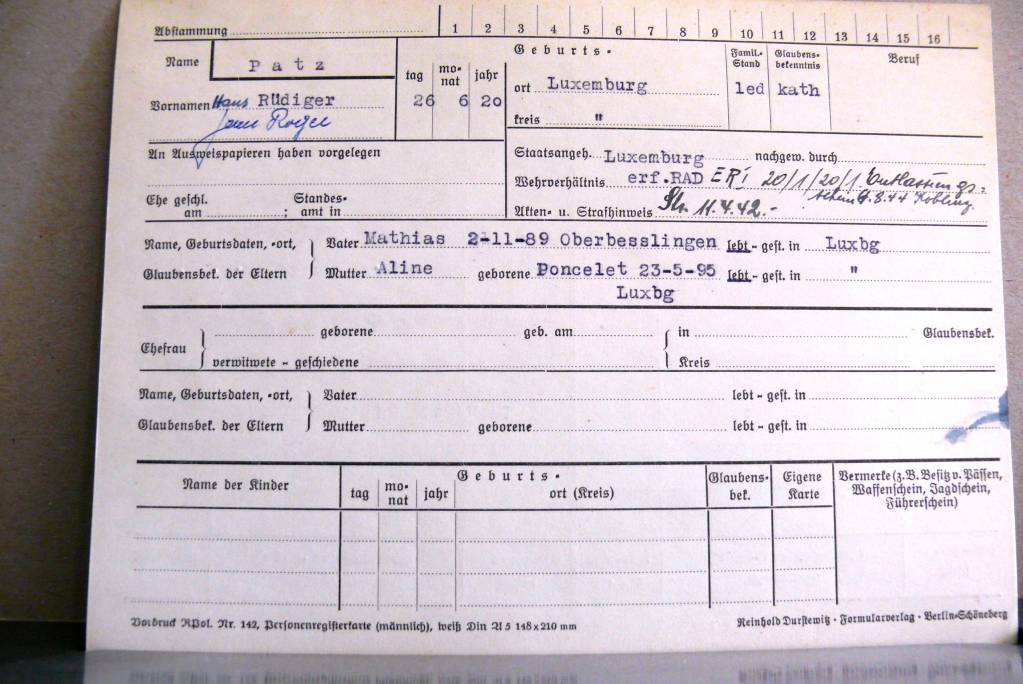 Abstammung 1 2 3 4 5 6 7 8 9 10 11 12 13 14 15 16
Name Patz tag mo-nat jahr Geburts- Famil.-Stand Glaubens-bekenntnis Beruf
Vornamen Hans Rüdiger 26 6 20 ort Luxemburg led kath
Jean Roger kreis "
An Ausweispapieren haben vorgelegen
Staatsangeh. Luxemburg nachgew. durch
Wehrverhältnis erf.RAD ER I 20/1/20/1 Entlassungs-
Ehe geschl. am ; Standes-amt in
Akten- u. Strafhinweis 11.4.42.- 44
Name, Geburtsdaten, -ort, Vater Mathias 2-11-89 Oberbesslingen lebt - gest. in Luxbg
Glaubensbek. der Eltern Mutter Aline geborene Poncelet 23-5-95 lebt - gest. in "
Luxbg
Ehefrau geborene geb. am in Glaubensbek.
verwitwete - geschiedene Kreis
Name, Geburtsdaten, -ort, Vater lebt - gest. in
Glaubensbek. der Eltern Mutter geborene lebt - gest. in
Name der Kinder tag mo-nat jahr Geburts- ort (Kreis) Glaubens-bek. Eigene Karte Vermerke (z.B. Besitz v. Pässen,
Waffenschein, Jagdschein,
Führerschein)
Vordruck RPol. Nr. 142, Personenregisterkarte (männlich), weiß Din A 5 148 x 210 mm
Reinhold Durstewitz · Formularverlag · Berlin-Schöneberg